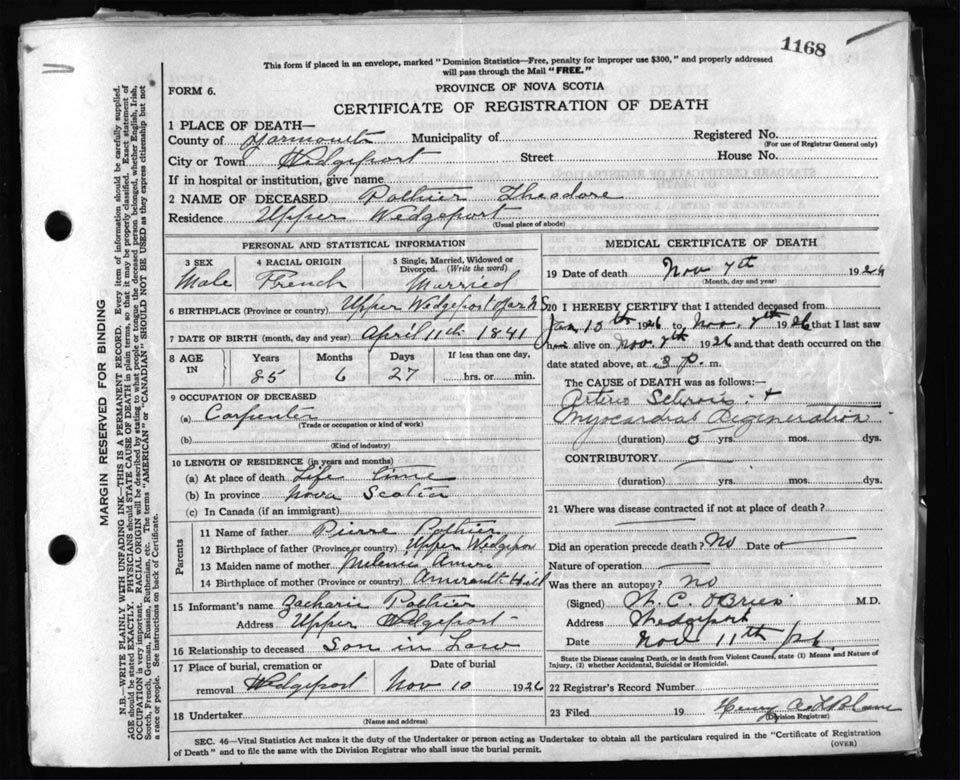 1168
This form if placed in an envelope, marked "Dominion Statistics—Free, penalty for improper use $300," and properly addressed
will pass through the Mail "FREE."
FORM 6.
PROVINCE OF NOVA SCOTIA
CERTIFICATE OF REGISTRATION OF DEATH
1 PLACE OF DEATH—
County of Yarmouth Municipality of Registered No.
(For use of Registrar General only)
City or Town Wedgeport Street House No.
If in hospital or institution, give name
2 NAME OF DECEASED Pothier Theodore
Residence Upper Wedgeport
(Usual place of abode)
PERSONAL AND STATISTICAL INFORMATION
3 SEX 4 RACIAL ORIGIN 5 Single, Married, Widowed or Divorced. (Write the word)
Male French Married
6 BIRTHPLACE (Province or country) Upper Wedgeport Yar N S
7 DATE OF BIRTH (month, day and year) April 11th 1841
8 AGE IN Years Months Days If less than one day,
85 6 27 hrs. or min.
9 OCCUPATION OF DECEASED
(a) Carpenter
(Trade or occupation or kind of work)
(b)
(Kind of industry)
10 LENGTH OF RESIDENCE (in years and months)
(a) At place of death Life time
(b) In province Nova Scotia
(c) In Canada (if an immigrant)
Parents
11 Name of father Pierre Pothier
12 Birthplace of father (Province or country) Upper Wedgeport
13 Maiden name of mother
14 Birthplace of mother (Province or country) Amirault Hill
15 Informant's name Zacharie Pothier
Address Upper Wedgeport
16 Relationship to deceased Son in Law
17 Place of burial, cremation or removal Wedgeport Date of burial Nov 10 1926
18 Undertaker
(Name and address)
MEDICAL CERTIFICATE OF DEATH
19 Date of death Nov 7th 1926
(Month, day and year)
20 I HEREBY CERTIFY that I attended deceased from
Jan 13th 1926 to Nov. 7th 1926 that I last saw
him alive on Nov. 7th 1926 and that death occurred on the
date stated above, at 3 p. m.
The CAUSE OF DEATH was as follows:—
Arterio Sclerosis +
Myocardial Degeneration
(duration) 5 yrs. mos. dys.
CONTRIBUTORY —
(duration) yrs. mos. dys.
21 Where was disease contracted if not at place of death?
—
Did an operation precede death? No Date of —
Nature of operation —
Was there an autopsy? no
(Signed) W. C. O'Brien M.D.
Address Wedgeport
Date Nov 11th /26
State the Disease causing Death, or in death from Violent Causes, state (1) Means and Nature of
Injury, (2) whether Accidental, Suicidal or Homicidal.
22 Registrar's Record Number
23 Filed 19 Henry A LeBlanc
(Division Registrar)
SEC. 46—Vital Statistics Act makes it the duty of the Undertaker or person acting as Undertaker to obtain all the particulars required in the "Certificate of Registration
of Death" and to file the same with the Division Registrar who shall issue the burial permit.
(OVER)
MARGIN RESERVED FOR BINDING
N.B.—WRITE PLAINLY WITH UNFADING INK—THIS IS A PERMANENT RECORD. Every item of information should be carefully supplied.
AGE should be stated EXACTLY. PHYSICIANS should STATE CAUSE OF DEATH in plain terms, so that it may be properly classified. Exact statement of
OCCUPATION is very important. RACIAL ORIGIN will be described by stating to what people or tongue the deceased person belonged, whether English, Irish,
Scotch, French, German, Russian, Ruthenian, etc. The terms "AMERICAN" or "CANADIAN" SHOULD NOT BE USED as they express citizenship but not
a race or people. See instructions on back of Certificate.